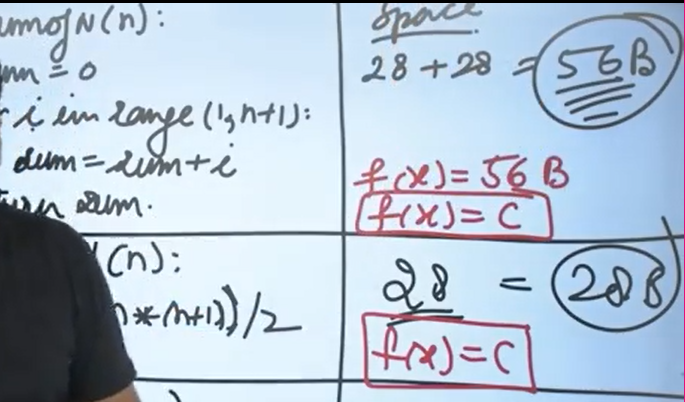 umofN(n):
um = 0
r i in range (1, n+1):
sum = sum + i
urn sum.
Space
28 + 28 = 56 B
f(x) = 56 B
f(x) = C
(n):
n * (n+1))/2
28 = 28 B
f(x) = C
)